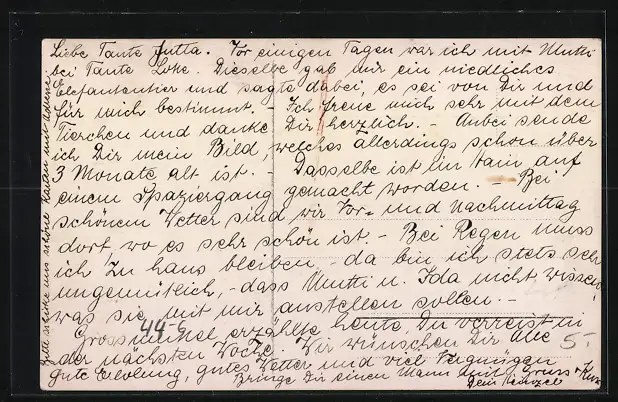 Liebe Tante Jutta. Vor einigen Tagen war ich mit Mutti
bei Tante Lotte. Dieselbe gab mir ein niedliches
Elefantentier und sagte dabei, es sei von Dir und
für mich bestimmt. - Ich freue mich sehr mit dem
Tierchen und danke Dir herzlich. Anbei sende
ich Dir mein Bild, welches allerdings schon über
3 Monate alt ist. - Dasselbe ist im Hain auf
einem Spaziergang gemacht worden. - Bei
schönem Wetter sind wir Vor- und Nachmittag
dort, wo es sehr schön ist. - Bei Regen muss
ich zu haus bleiben - da bin ich stets sehr
ungemütlich, - dass Mutti u. Ida nicht wissen,
was sie mit mir anstellen sollen. -
Grossmuttel erzählte heute, Du verreist in
der nächsten Woche. Wir wünschen Dir Alle
gute Erholung, gutes Wetter und viel Vergnügen
Bringe Dir einen Mann mit. Gruss + Kuss
Dein
44-6
5.-
Bitte schicke uns schöne Karten mit